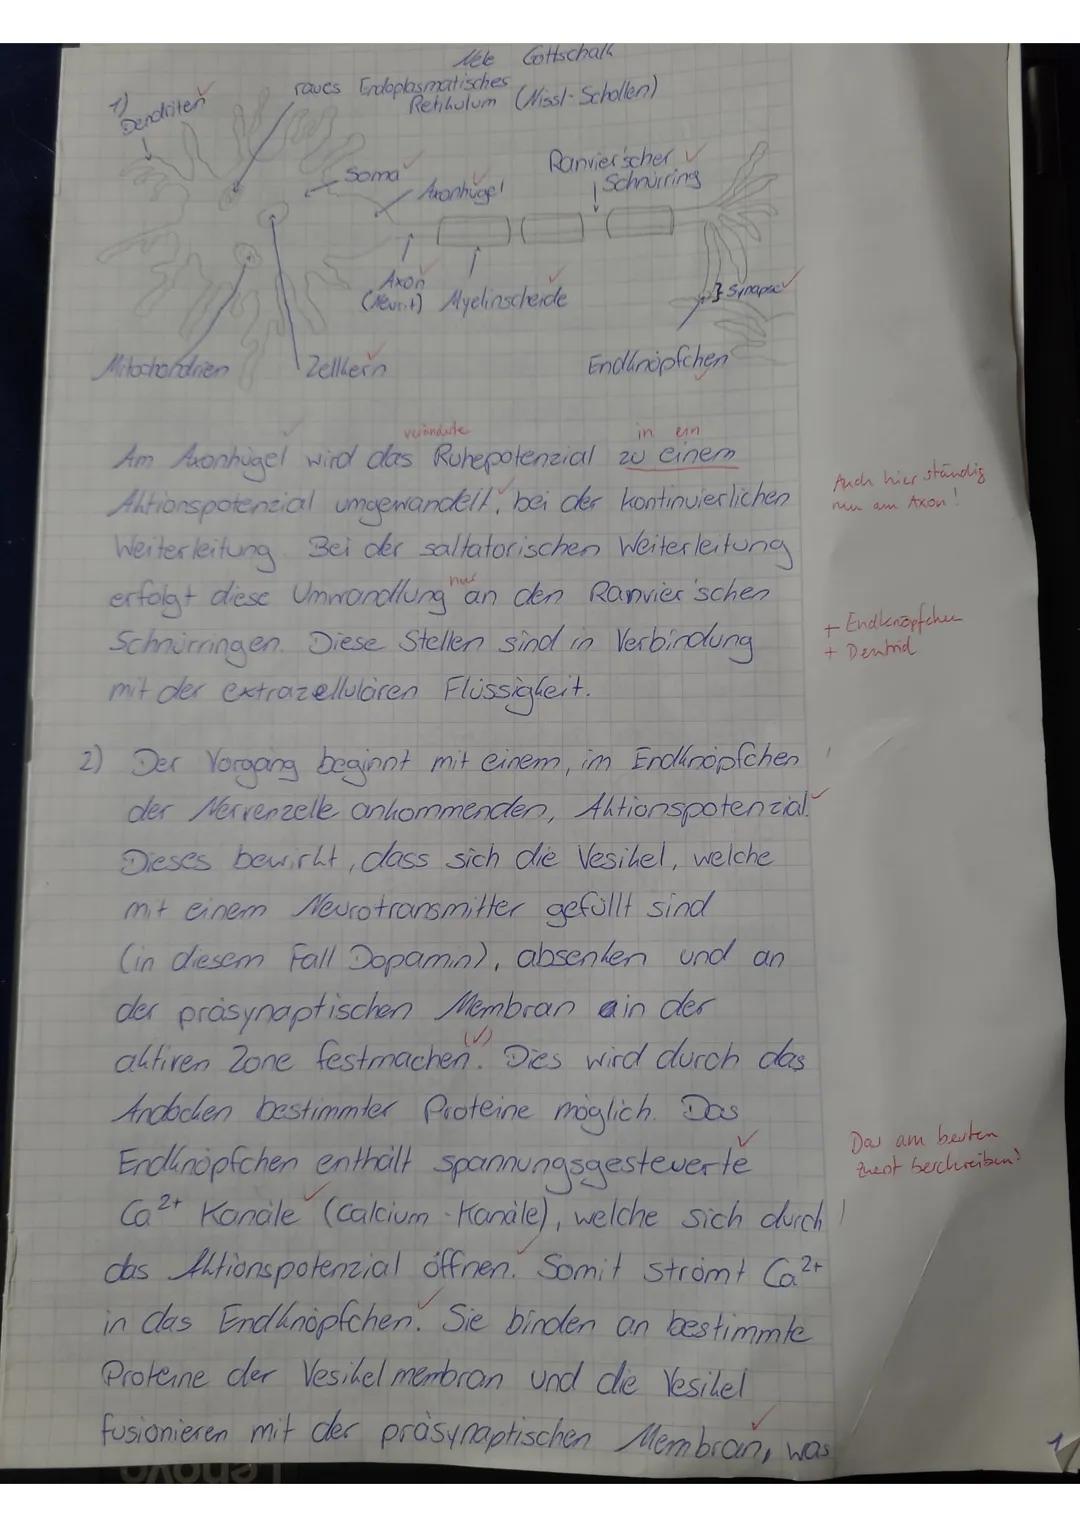 Nele Gottschalk
1)
Dendriten
raues Endoplasmatisches
Retikulum (Nissl-Schollen)
Soma
Axonhügel
Ranvier'scher
Schnürring
Axon
(Neurit)
Myelinscheide
} Synapse
Mitochondrien
Zellkern
Endknöpfchen
veränderte
in ein
Am Axonhügel wird das Ruhepotenzial zu einem
Aktionspotenzial umgewandelt, bei der kontinuierlichen
Auch hier ständig
nur am Axon!
Weiterleitung. Bei der saltatorischen Weiterleitung
nur
erfolgt diese Umwandlung an den Ranvier'schen
Schnürringen. Diese Stellen sind in Verbindung
+ Endknöpfchen
+ Dentrid
mit der extrazellulären Flüssigkeit.
2) Der Vorgang beginnt mit einem, im Endknöpfchen
der Nervenzelle ankommenden, Aktionspotenzial.
Dieses bewirkt, dass sich die Vesikel, welche
mit einem Neurotransmitter gefüllt sind
(in diesem Fall Dopamin), absenken und an
der präsynaptischen Membran in der
aktiven Zone festmachen. Dies wird durch das
Andocken bestimmter Proteine möglich. Das
Endknöpfchen enthält spannungsgesteuerte
Das am besten
zuerst beschreiben!
Ca2+ Kanäle (Calcium-Kanäle), welche sich durch
das Aktionspotenzial öffnen. Somit strömt Ca2+
in das Endknöpfchen. Sie binden an bestimmte
Proteine der Vesikelmembran und die Vesikel
fusionieren mit der präsynaptischen Membran, was
1
Lenovo